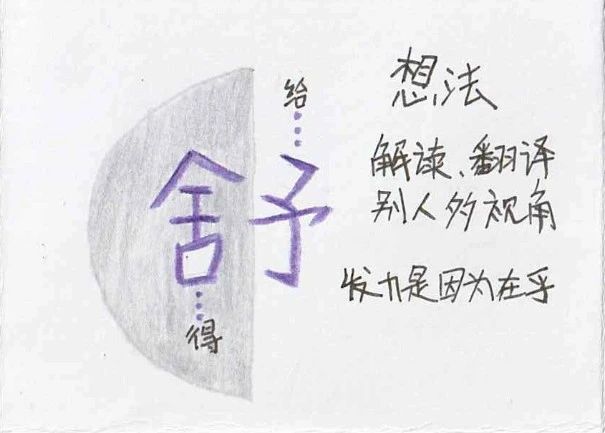 给
舒
得
想法
解读、翻译
别人的视角
发力是因为在乎